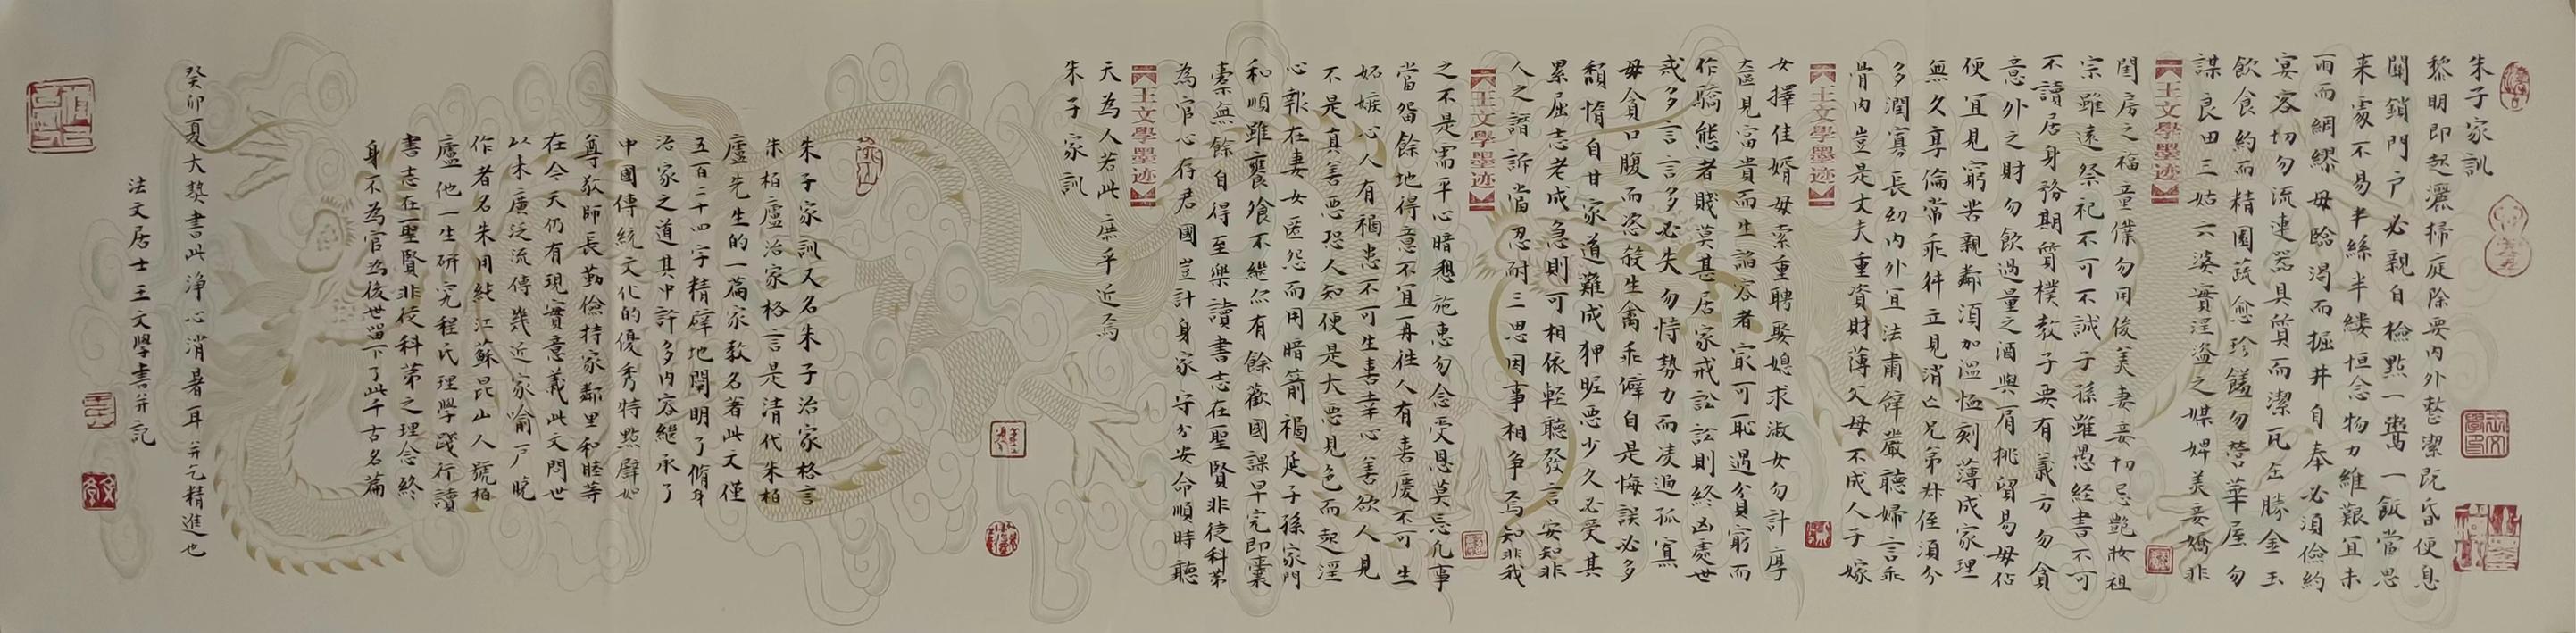 朱子家訓
黎明即起灑掃庭除要內外整潔既昏便息
関鎖門户必親自檢點一粥一飯當思
来處不易半絲半縷恒念物力維艱宜未
雨而綢繆毋臨渴而掘井自奉必須儉約
宴客切勿流連器具質而潔瓦缶勝金玉
飲食約而精園蔬愈珍饈勿營華屋勿
謀良田三姑六婆實淫盜之媒婢美妾嬌非
【王文學墨迹】
閨房之福童僕勿用俊美妻妾切忌艷妝祖
宗雖遠祭祀不可不誠子孫雖愚經書不可
不讀居身務期質樸教子要有義方勿貪
意外之財勿飲過量之酒與肩挑貿易毋佔
便宜見窮苦親鄰須加溫恤刻薄成家理
無久享倫常乖舛立見消亡兄弟叔侄須分
多潤寡長幼內外宜法肅辭嚴聽婦言乖
骨肉豈是丈夫重資財薄父母不成人子嫁
【王文學墨迹】
女擇佳婿毋索重聘娶媳求淑女勿計厚
奩見富貴而生諂容者最可恥遇貧窮而
作驕態者賤莫甚居家戒訟訟則終凶處世
戒多言言多必失勿恃勢力而凌逼孤寡
毋貪口腹而恣殺生禽乖僻自是悔誤必多
頹惰自甘家道難成狎昵惡少久必受其
累屈志老成急則可相依輕聽發言安知非
人之譖訴當忍耐三思因事相争焉知非我
【王文學墨迹】
之不是需平心暗想施惠勿念受恩莫忘凡事
當留餘地得意不宜再往人有喜慶不可生
妬嫉心人有禍患不可生喜幸心善欲人見
不是真善惡恐人知便是大惡見色而起淫
心報在妻女匿怨而用暗箭禍延子孫家門
和順雖饔飧不繼亦有餘歡國課早完即囊
橐無餘自得至樂讀書志在聖賢非徒科第
為官心存君國豈計身家守分安命順時聽
【王文學墨迹】
天為人若此庶乎近焉
朱子家訓
朱子家訓又名朱子治家格言
朱柏廬治家格言是清代朱柏
廬先生的一篇家教名著此文僅
五百二十四字精辟地闡明了脩身
治家之道其中許多内容繼承了
中國傳統文化的優秀特點譬如
尊敬師長勤儉持家鄰里和睦等
在今天仍有現實意義此文問世
以来廣泛流傳幾近家喻户曉
作者名朱用純江蘇昆山人號柏
廬他一生研究程氏理學踐行讀
書志在聖賢非徒科第之理念終
身不為官為後世留下了此千古名篇
癸卯夏大熱書此淨心消暑耳并乞精進也
法文居士王文學書并記